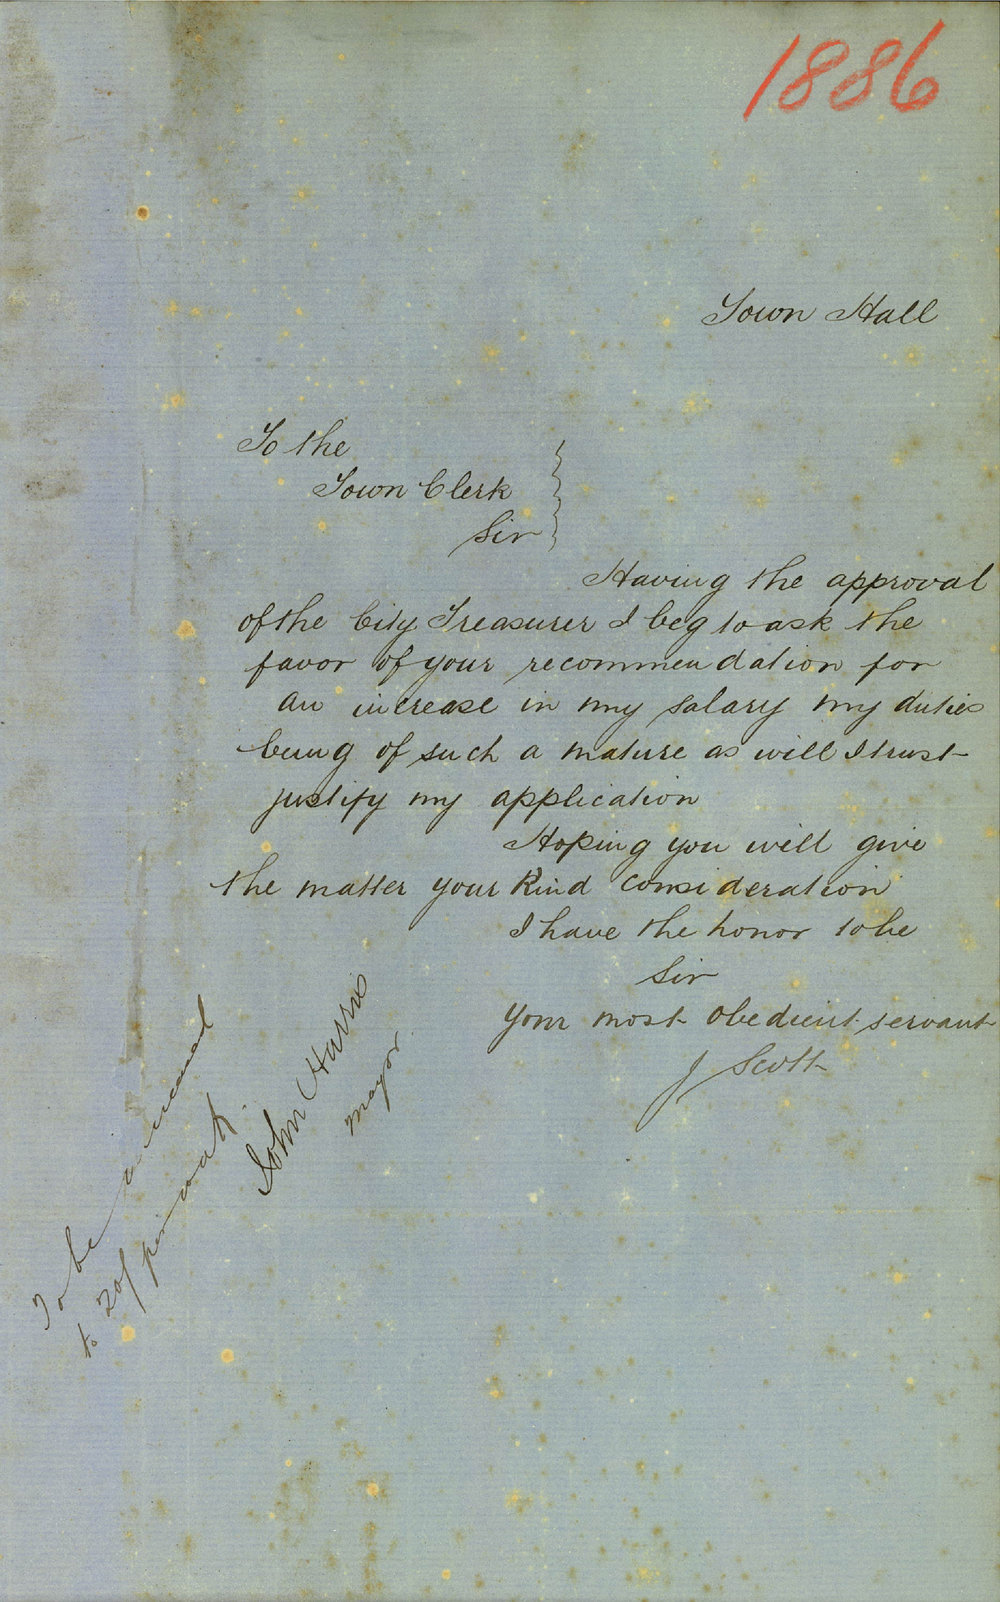 1886
Town Hall
To the
Town Clerk
Sir
Having the approval
of the City Treasurer I beg to ask the
favor of your recommendation for
an increase in my salary my duties
being of such a nature as will I trust
justify my application
Hoping you will give
the matter your kind consideration
I have the honor to be
Sir
Your most obedient servant
J Scott
To be
to 20/ per week.
John Harris
Mayor